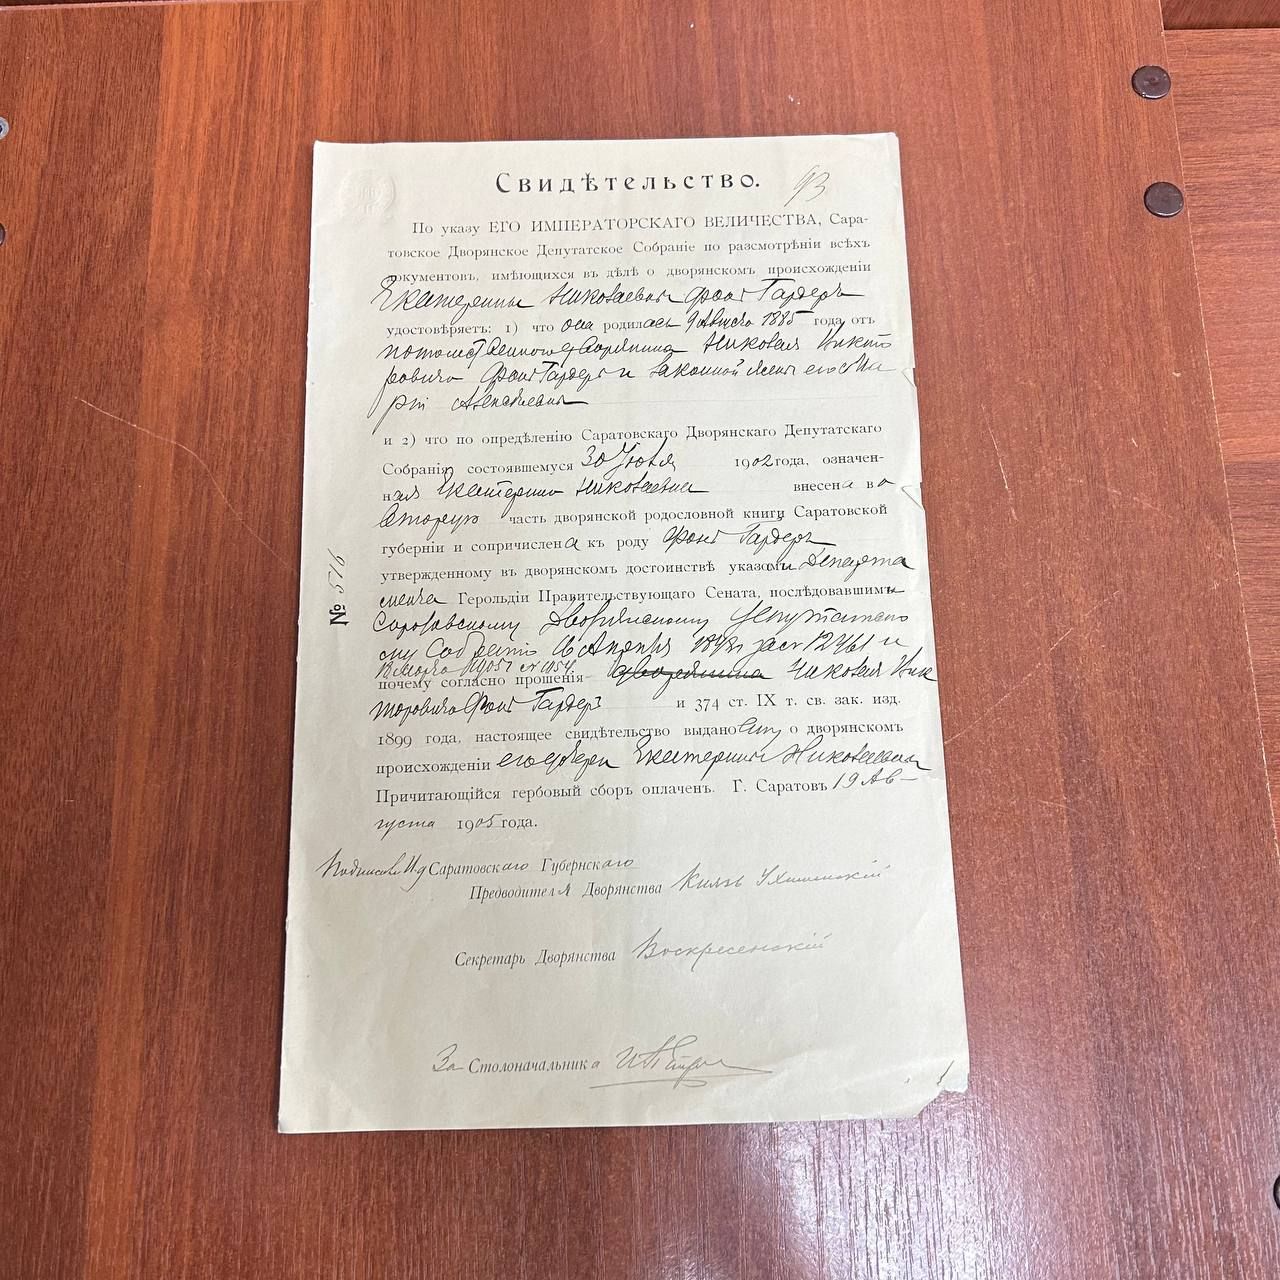 Свидѣтельство. 93
По указу ЕГО ИМПЕРАТОРСКАГО ВЕЛИЧЕСТВА, Сара-
товское Дворянское Депутатское Собраніе по разсмотрѣніи всѣхъ
документовъ, имѣющихся въ дѣлѣ о дворянскомъ происхожденіи
Екатерины Николаевны фонъ Гардеръ
удостовѣряетъ: 1) что она родилась 9 Августа 1885 года отъ
потомственного дворянина Николая Викто
ровича фонъ Гардеръ и законной жены его Ма
ріи
и 2) что по опредѣленію Саратовскаго Дворянскаго Депутатскаго
Собранія состоявшемуся 30 Іюля 1902 года, означен-
ная Екатерина Николаевна внесена во
вторую часть дворянской родословной книги Саратовской
губерніи и сопричислена къ роду фонъ Гардеръ
утвержденному въ дворянскомъ достоинствѣ указами Департа
мента Герольдіи Правительствующаго Сената, послѣдовавшими
Саратовскому Дворянскому Депутатско
му Собранію Апрѣля за № 2461 и
Марта 1905 г. № 1054.
почему согласно прошенія дворянина Николая Вик
торовича фонъ Гардеръ и 374 ст. IX т. св. зак. изд.
1899 года, настоящее свидѣтельство выдано ему о дворянскомъ
происхожденіи его дочери Екатерины Николаевны
Причитающійся гербовый сборъ оплаченъ. Г. Саратовъ 19 Ав-
густа 1905 года.
№ 516
Подписали И.д. Саратовскаго Губернскаго
Предводителя Дворянства Князь Ухтомскій
Секретарь Дворянства Воскресенскій
За Столоначальника